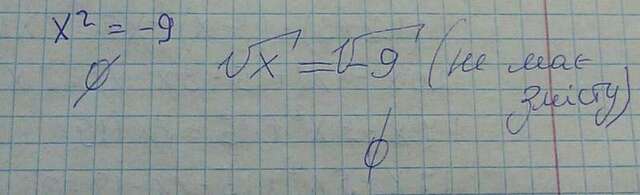 x² = -9
∅
√x = √-9 (не має
змісту)
∅